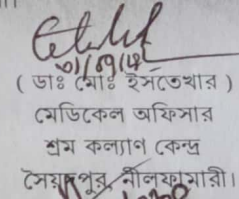 ( ডাঃ মোঃ ইসতেখার )
মেডিকেল অফিসার
শ্রম কল্যাণ কেন্দ্র
সৈয়দপুর, নীলফামারী।